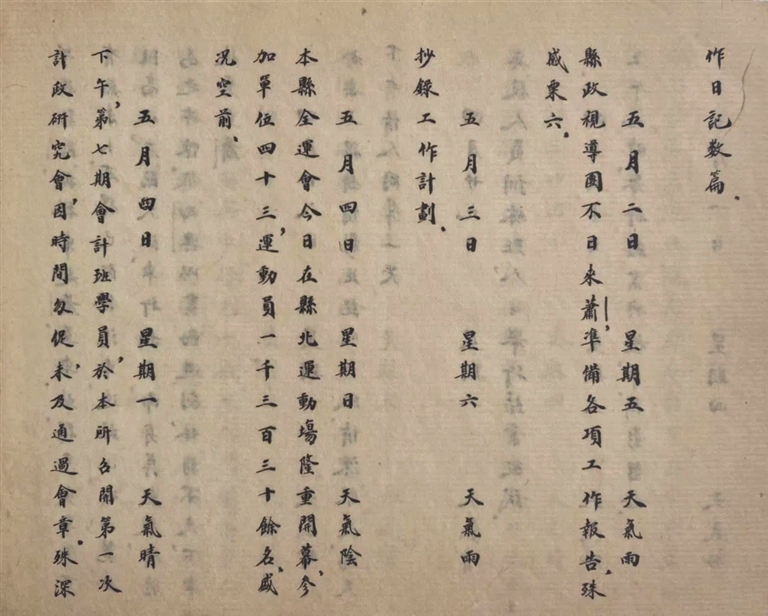 作日記数篇.
五月二日 星期五 天氣雨
縣政視導團不日來蕭,準備各項工作報告.殊
感栗六.
五月三日 星期六 天氣雨
抄錄工作計劃.
五月四日 星期日 天氣陰
本縣全運會今日在縣北運動場隆重開幕,參
加單位四十三,運動員一千三百三十餘名,盛
况空前.
五月四日 星期一 天氣晴
下午,第七期會計班學員,於本所召開第一次
計政研究會,因時間匆促,未及通過會章.殊深